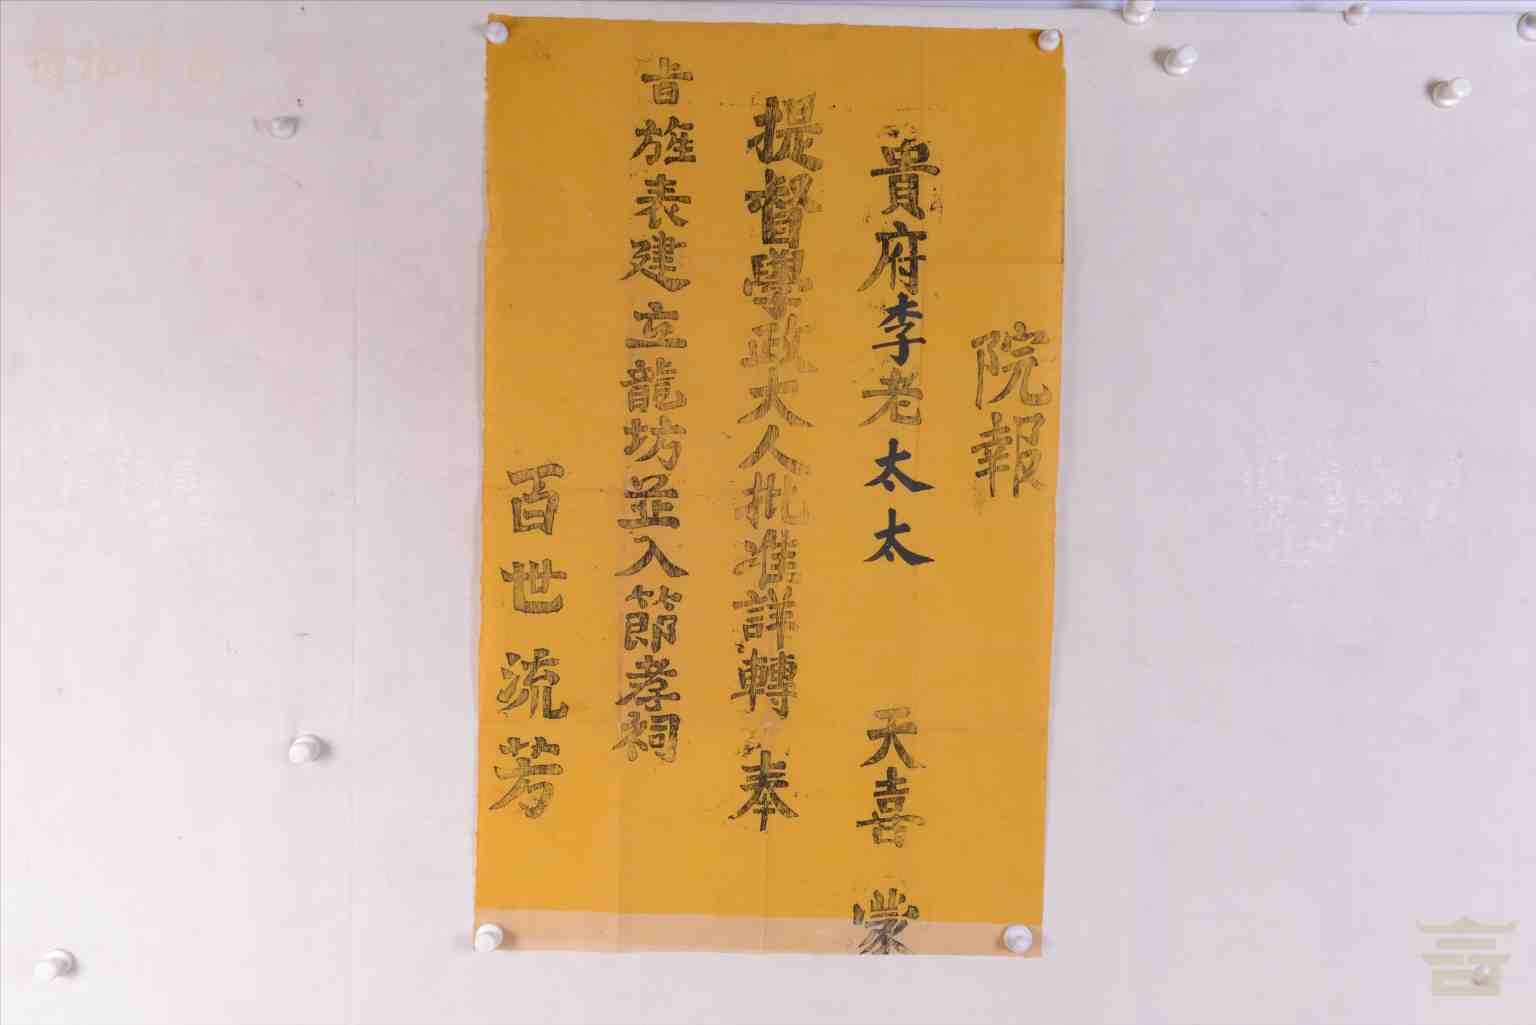 院報
貴府李老太太 天喜 蒙
提督學政大人批准詳轉 奉
旨旌表建立龍坊並入節孝祠
百世流芳